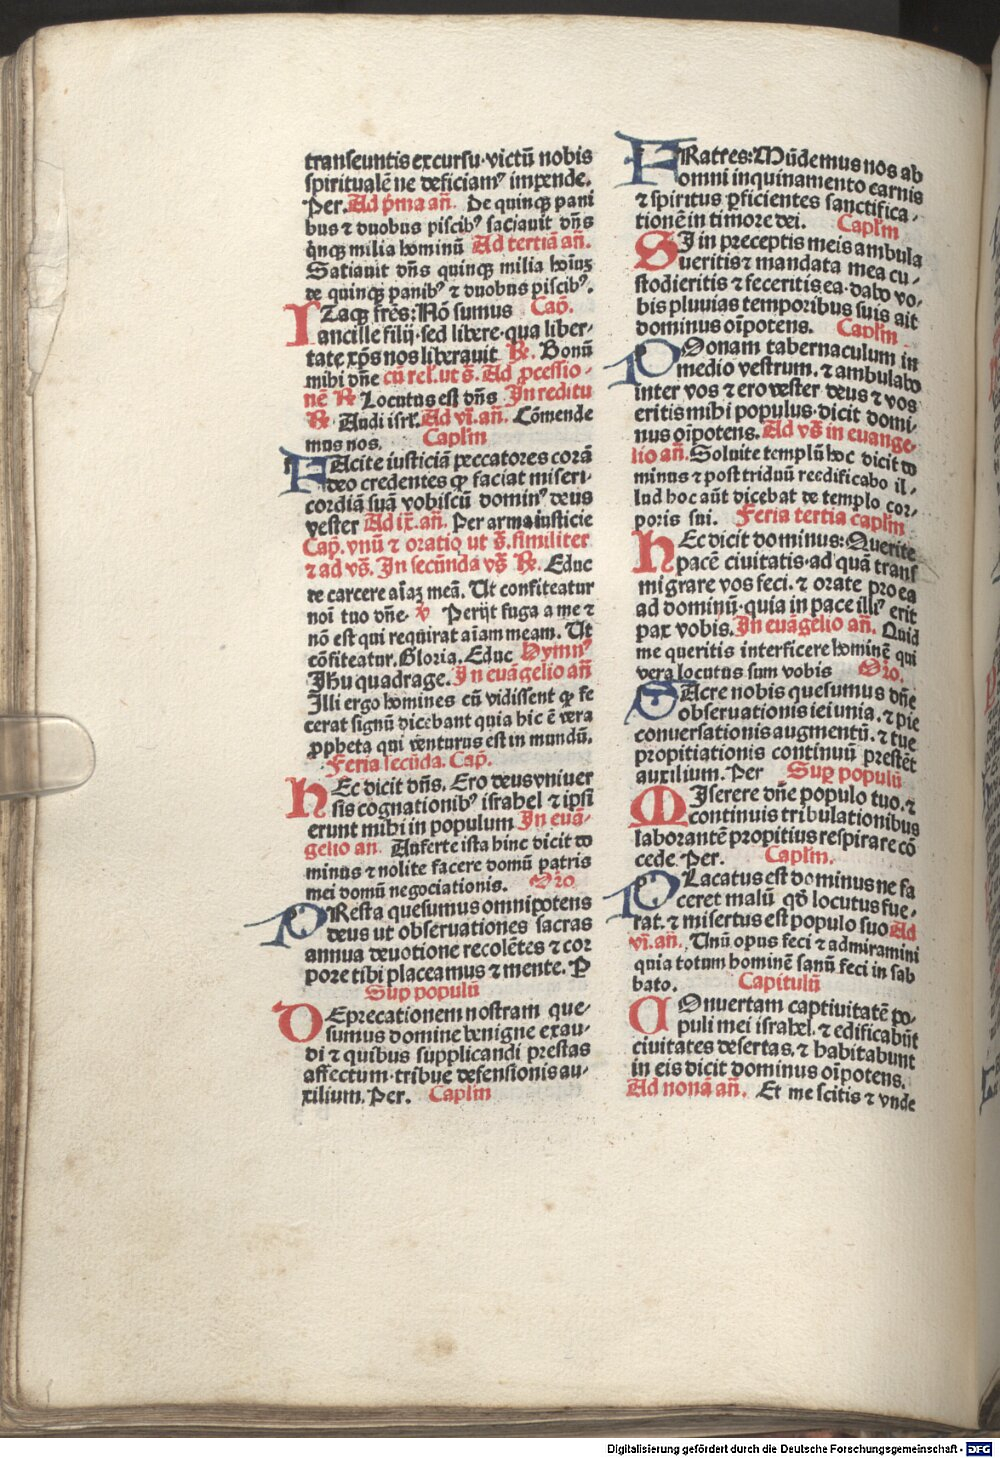 transeuntis excursu·victū nobis
spiritualē ne deficiamꝰ impende.
Per. Ad p̄ma añ. De quinqꝫ pani
bus ⁊ duobus piscibꝰ saciauit dñs
q̇nqꝫ milia hominū Ad tertiā añ.
Satiauit dñs quinqꝫ milia hoīuꝫ
de quinqꝫ panibꝰ ⁊ duobus piscibꝰ.
ITaqꝫ frēs: Nō sumus Cap̄.
ancille filij·sed libere·qua liber-
tate xp̄s nos liberauit ℟. Bonū
mihi dñe cū rel. ut s̄. Ad ꝓcessio-
nē ℟ Locutus est dñs In reditu
℟ Audi isrl. Ad vi. añ. Cōmende
mus nos. Caplm
FAcite iusticiā peccatores corā
deo credentes ꝙ faciat miseri-
cordiā suā vobiscū dominꝰ deus
vester Ad ix. añ. Per arma iusticie
Cap̄. vnū ⁊ oratio ut s̄. similiter
⁊ ad vs̄. In secūnda vs̄ ℟. Educ
de carcere aīaꝫ meā. Ut confiteatur
noī tuo dñe. v̄ Perijt fuga a me ⁊
nō est qui requirat aīam meam. Ut
cōfiteatur. Gloria. Educ Hymnꝰ
Jhu quadrage. In euāgelio añ
Illi ergo homines cū vidissent ꝙ fe
cerat signū dicebant quia hic ē vera
ꝓpheta qui venturus est in mundū.
Feria secūda. Cap̄.
HEc dicit dñs. Ero deus vniuer
sis cognationibꝰ israhel ⁊ ipsi
erunt mihi in populum In euā-
gelio an Auferte ista hinc dicit do
minus ⁊ nolite facere domū patris
mei domū negociationis. Oro
PResta quesumus omnipotens
deus ut obseruationes sacras
annua deuotione recolētes ⁊ cor
pore tibi placeamus ⁊ mente. P
Sup populū
DEprecationem nostram que-
sumus domine benigne exau-
di ⁊ quibus supplicandi prestas
affectum·tribue defensionis au-
xilium. Per. Caplm
FRatres: Mūdemus nos ab
omni inquinamento carnis
⁊ spiritus ꝑficientes sanctifica-
tionē in timore dei. Caplm
SI in preceptis meis ambula
ueritis ⁊ mandata mea cu-
stodieritis ⁊ feceritis ea·dabo vo-
bis pluuias temporibus suis ait
dominus oīpotens. Caplm
POnam tabernaculum in
medio vestrum. ⁊ ambulabo
inter vos ⁊ ero vester deus ⁊ vos
eritis mihi populus·dicit domi-
nus oīpotens. Ad vs̄ in euange-
lio añ. Soluite templū hoc dicit do
minus ⁊ post triduū reedificabo il-
lud hoc aūt dicebat de templo cor-
poris sui. Feria tertia caplm
HEc dicit dominus: Querite
pacē ciuitatis·ad quā trans
migrare vos feci. ⁊ orate pro ea
ad dominū·quia in pace illiꝰ erit
pax vobis. In euāgelio añ. Quid
me queritis interficere hominē qui
vera locutus sum vobis Oro.
SAcre nobis quesumus dñe
obseruationis ieiunia. ⁊ pie
conuersationis augmentū. ⁊ tue
propitiationis continuū prestēt
auxilium. Per Suꝑ populū
MIserere dñe populo tuo. ⁊
continuis tribulationibus
laborantē propitius respirare cō
cede. Per. Caplm.
PLacatus est dominus ne fa
ceret malū qđ locutus fue-
rat. ⁊ misertus est populo suo Ad
vi. añ. Unū opus feci ⁊ admiramini
quia totum hominē sanū feci in sab
bato. Capitulū
COnuertam captiuitatē po-
puli mei israhel. ⁊ edificabūt
ciuitates desertas. ⁊ habitabunt
in eis dicit dominus oīpotens.
Ad nonā añ. Et me scitis ⁊ vnde
Digitalisierung gefördert durch die Deutsche Forschungsgemeinschaft - DFG